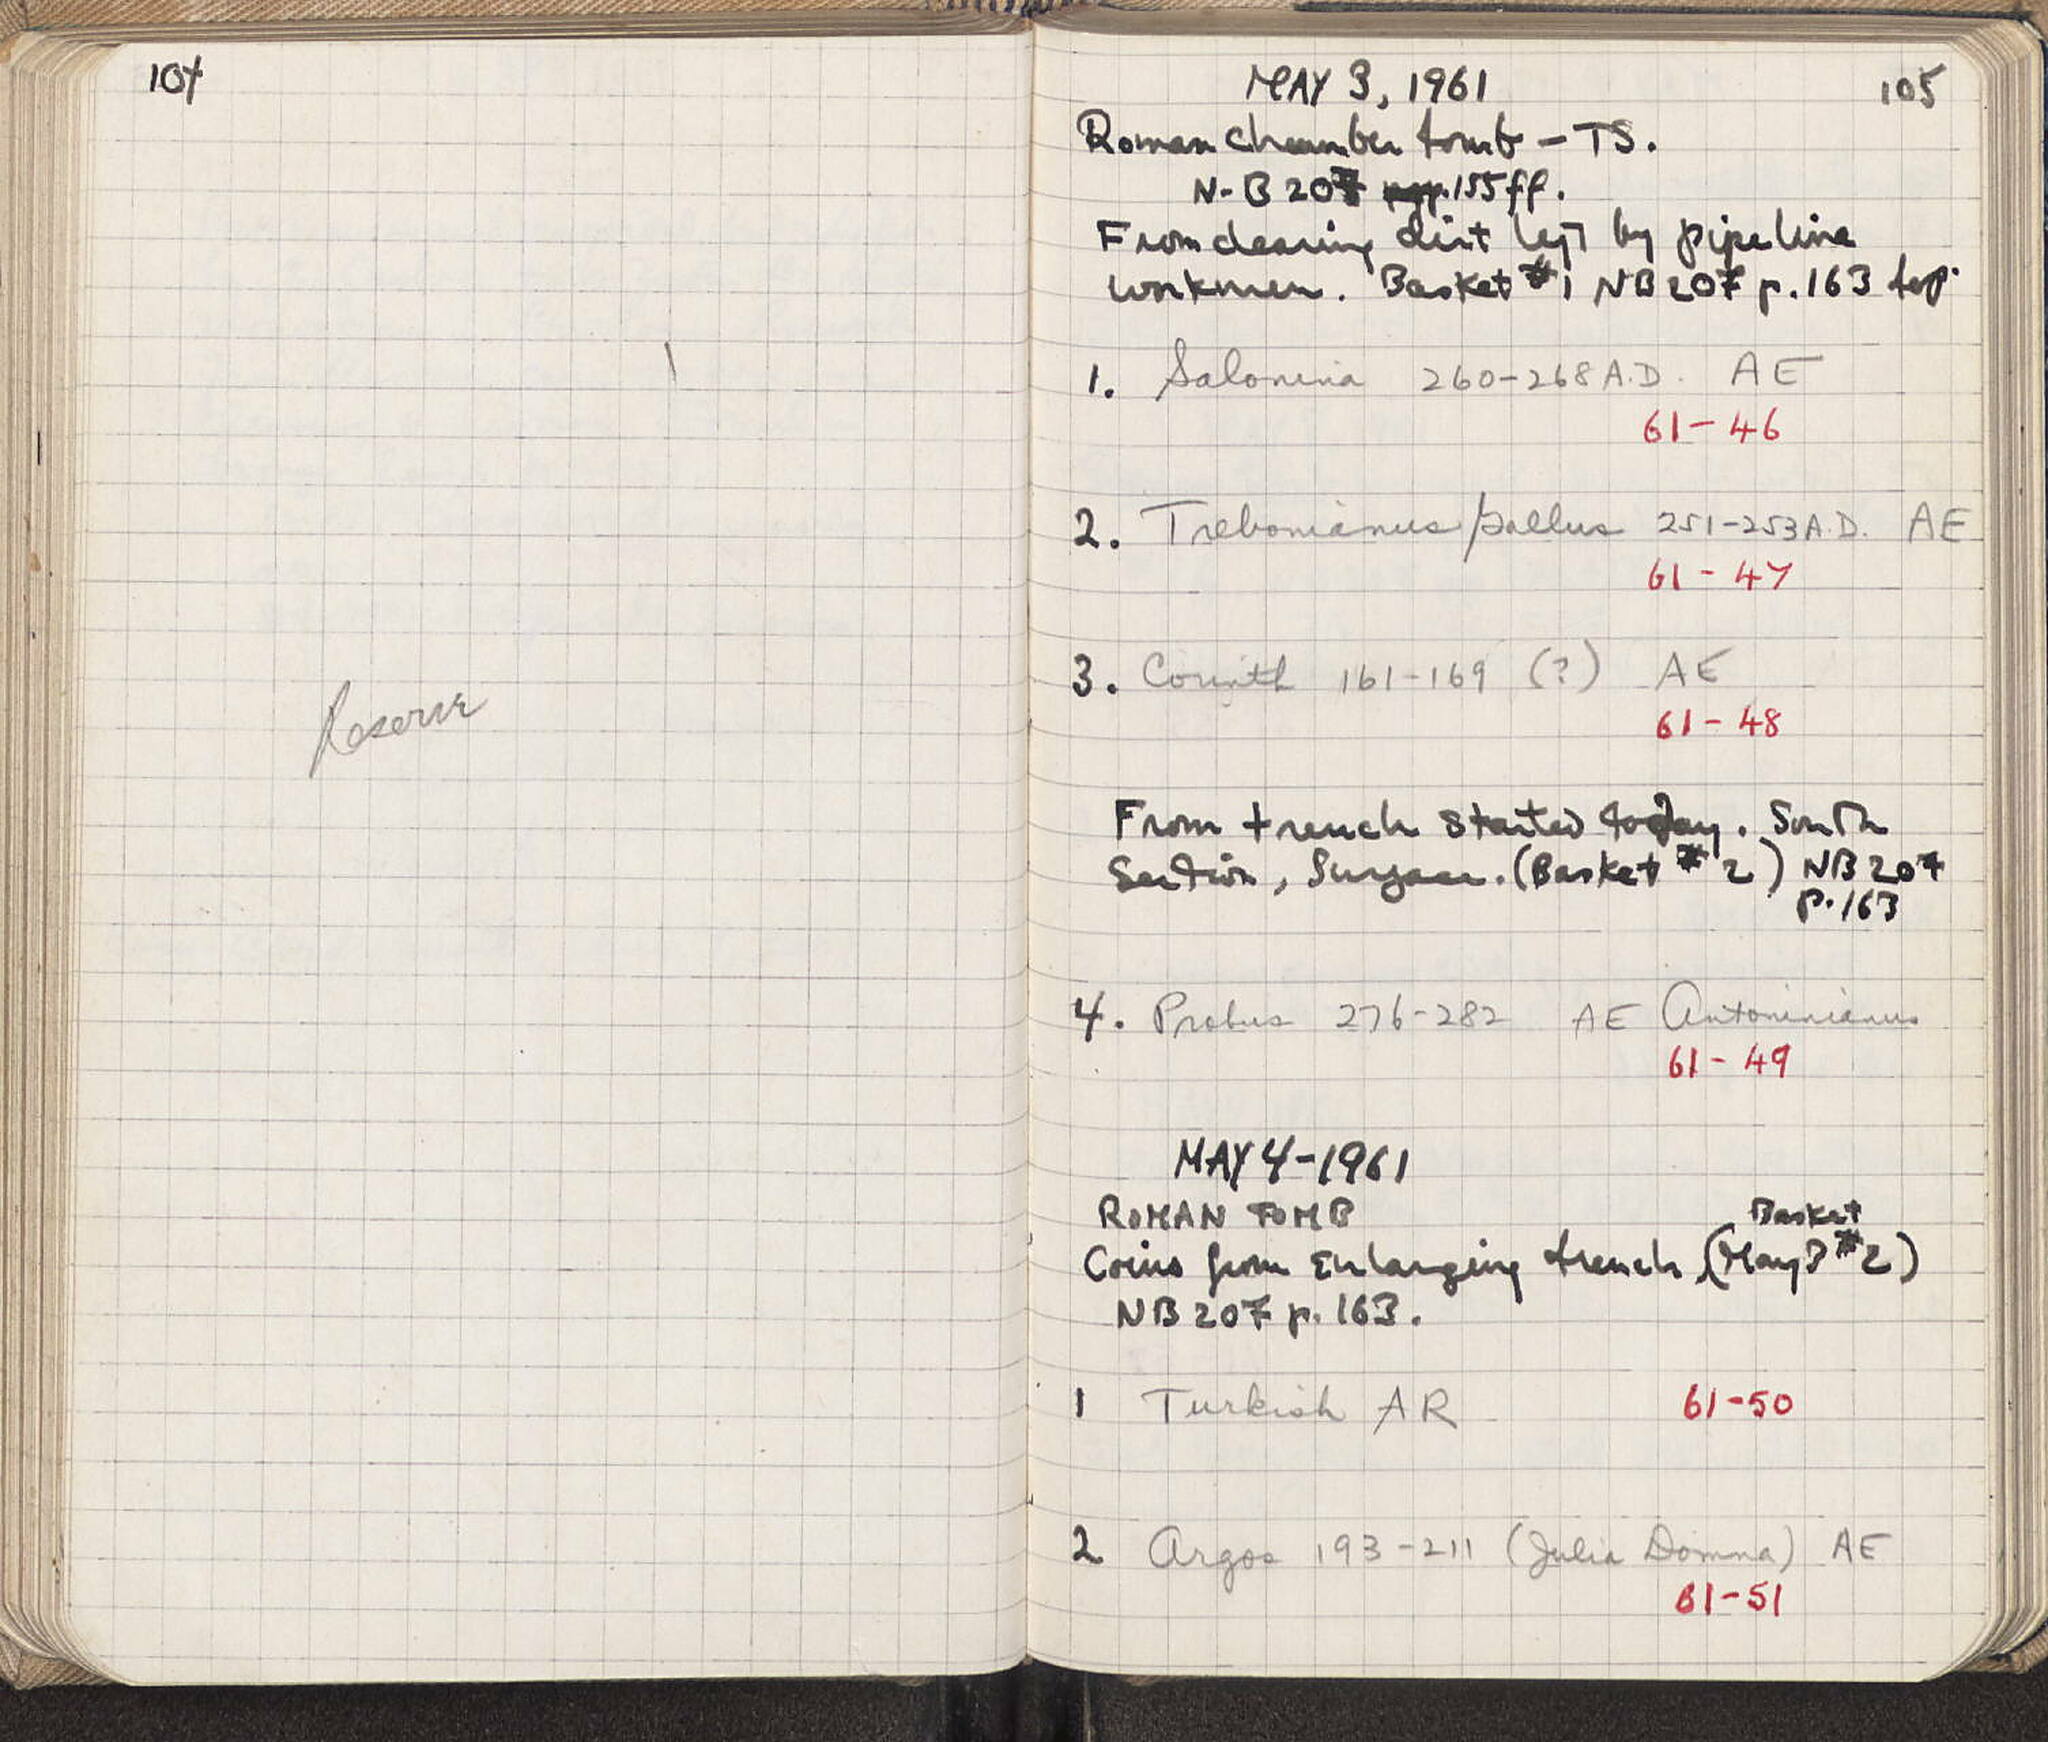 104
Reserve
MAY 3, 1961
105
Roman chamber tomb - TS.
N-B 207 pp. 155 ff.
From clearing dirt left by pipeline
workmen. Basket #1 NB 207 p. 163 top.
1. Salonina 260-268 A.D. AE
61-46
2. Trebonianus Gallus 251-253 A.D. AE
61-47
3. Corinth 161-169 (?) AE
61-48
From trench started today. South
Section, Surface. (Basket #2) NB 207
p. 163
4. Probus 276-282 AE Antoninianus
61-49
MAY 4-1961
ROMAN TOMB
Basket
Coins from Enlarging trench, (May 3 #2)
NB 207 p. 163.
1 Turkish AR 61-50
2 Argos 193-211 (Julia Domna) AE
61-51